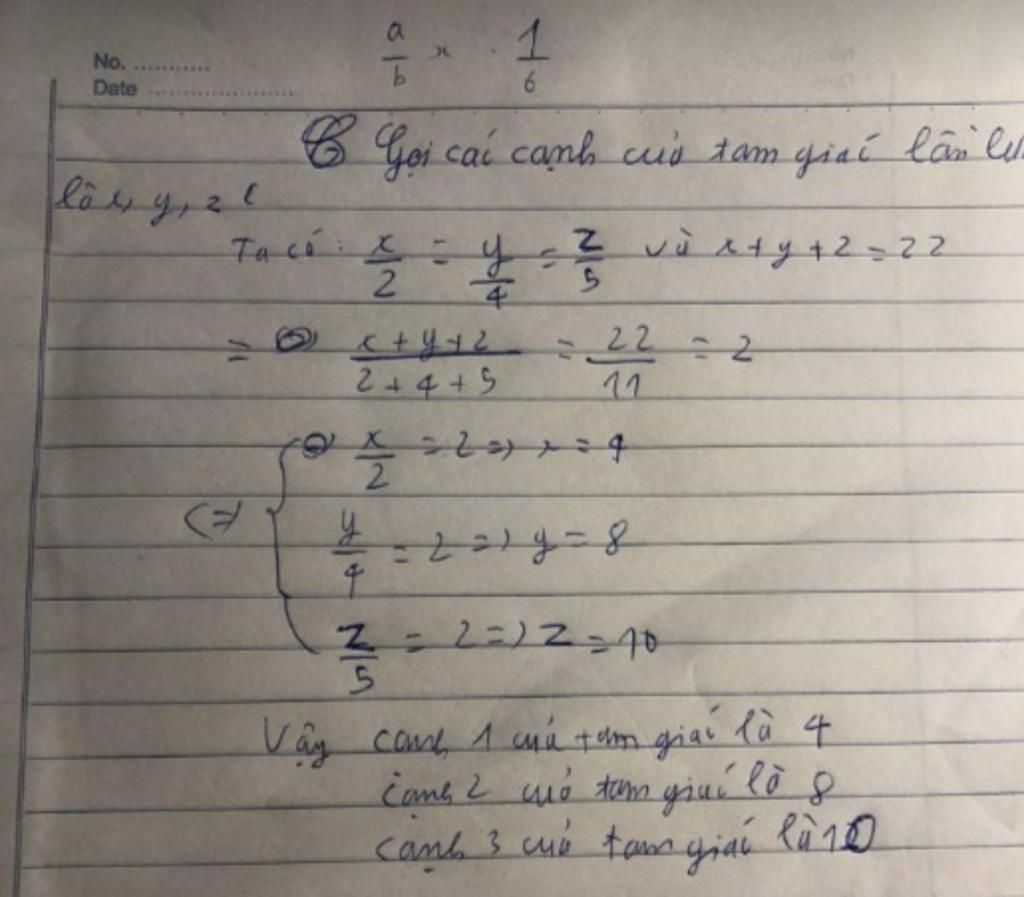 a/b x . 1/6
No. ...........
Date ......................
Gọi các cạnh của tam giác lần lư
là x, y, z (
Ta có: x/2 = y/4 = z/5 và x+y+z=22
= x+y+z/2+4+5 = 22/11 = 2
x/2 = 2 => x = 4
<=> y/4 = 2 => y = 8
z/5 = 2 => z = 10
Vậy cạnh 1 của tam giác là 4
cạnh 2 của tam giác là 8
cạnh 3 của tam giác là 10